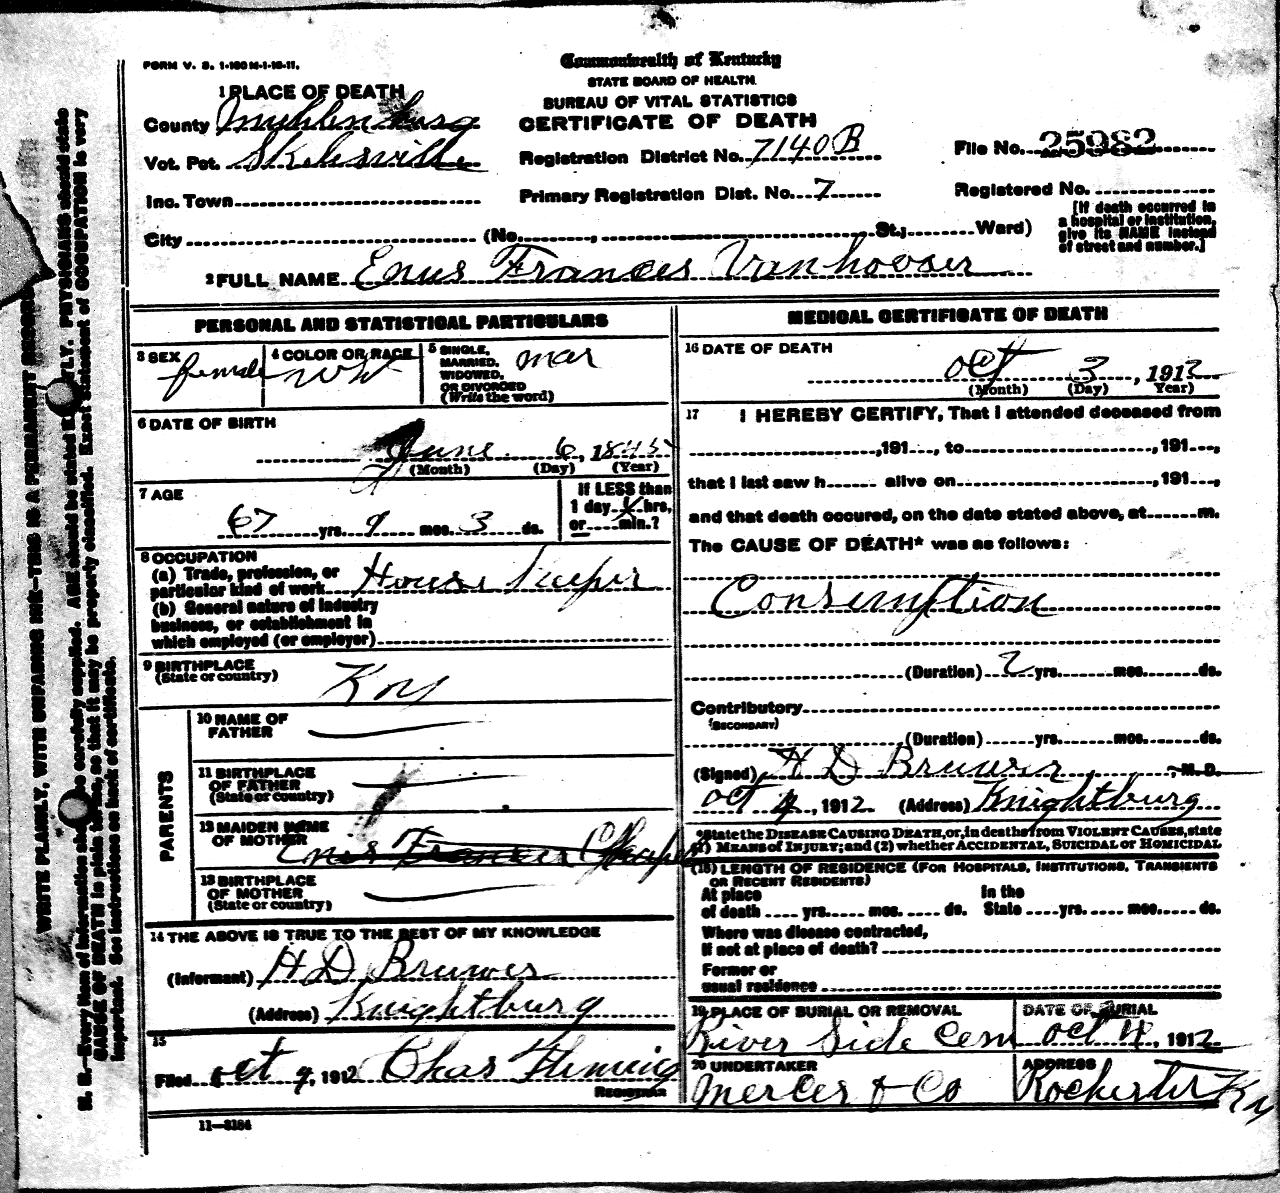 FORM V. S. 1-150 M-1-16-11.
Commonwealth of Kentucky
STATE BOARD OF HEALTH.
BUREAU OF VITAL STATISTICS
CERTIFICATE OF DEATH
1 PLACE OF DEATH
County Muhlenburg
Vot. Pct. Skilesville
Inc. Town
Registration District No. 7140B
Primary Registration Dist. No. 7
File No. 25982
Registered No.
City (No. , St.; Ward)
[If death occurred in
a hospital or institution,
give its NAME instead
of street and number.]
2 FULL NAME Enus Frances Vanhooser
PERSONAL AND STATISTICAL PARTICULARS
3 SEX female
4 COLOR OR RACE Wht
5 SINGLE,
MARRIED,
WIDOWED,
OR DIVORCED
(Write the word)
mar
6 DATE OF BIRTH
June 6, 1845
(Month) (Day) (Year)
7 AGE
67 yrs. 9 mos. 3 ds.
If LESS than
1 day hrs,
or min.?
8 OCCUPATION
(a) Trade, profession, or
particular kind of work House Keeper
(b) General nature of industry
business, or establishment in
which employed (or employer)
9 BIRTHPLACE
(State or country)
Ky
PARENTS
10 NAME OF
FATHER
11 BIRTHPLACE
OF FATHER
(State or country)
12 MAIDEN NAME
OF MOTHER
Enus Frances
13 BIRTHPLACE
OF MOTHER
(State or country)
14 THE ABOVE IS TRUE TO THE BEST OF MY KNOWLEDGE
(Informant) H D Bruwer
(Address) Knightburg
15
Filed Oct 9, 1912 Chas Fleming
REGISTRAR
11—3184
MEDICAL CERTIFICATE OF DEATH
16 DATE OF DEATH
Oct 3, 1912
(Month) (Day) (Year)
17 I HEREBY CERTIFY, That I attended deceased from
,191 , to ,191 ,
that I last saw h alive on ,191 ,
and that death occured, on the date stated above, at m.
The CAUSE OF DEATH* was as follows:
Consemption
(Duration) 2 yrs. mos. ds.
Contributory
(SECONDARY)
(Duration) yrs. mos. ds.
(Signed) H D Bruwer , M. D.
Oct 4, 1912 (Address) Knightburg
*State the DISEASE CAUSING DEATH, or, in deaths from VIOLENT CAUSES, state
(1) MEANS OF INJURY; and (2) whether ACCIDENTAL, SUICIDAL or HOMICIDAL
(18) LENGTH OF RESIDENCE (FOR HOSPITALS, INSTITUTIONS, TRANSIENTS
OR RECENT RESIDENTS)
At place In the
of death yrs. mos. ds. State yrs. mos. ds.
Where was disease contracted,
if not at place of death?
Former or
usual residence
19 PLACE OF BURIAL OR REMOVAL
River Side Cem
DATE OF BURIAL
Oct 4, 1912
20 UNDERTAKER
Mercer & Co
ADDRESS
Rochester Ky
WRITE PLAINLY, WITH UNFADING INK—THIS IS A PERMANENT RECORD
N. B.—Every item of information should be carefully supplied. AGE should be stated EXACTLY. PHYSICIANS should state
CAUSE OF DEATH in plain terms, so that it may be properly classified. Exact statement of OCCUPATION is very
important. See instructions on back of certificate.